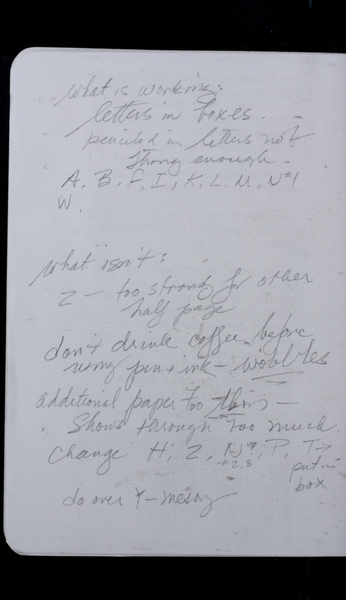 what is working:
letters in boxes.
penciled in letters not
strong enough.
A, B, F, I, K, L, M, N#1
W.
what isn't:
Z - too strong for other
half page
don't drink coffee before
using pen + ink - wobbles
additional paper too thin -
Shows through too much.
Change H, Z, N, P, T→
#2,3
put in
box
do over Y - messy